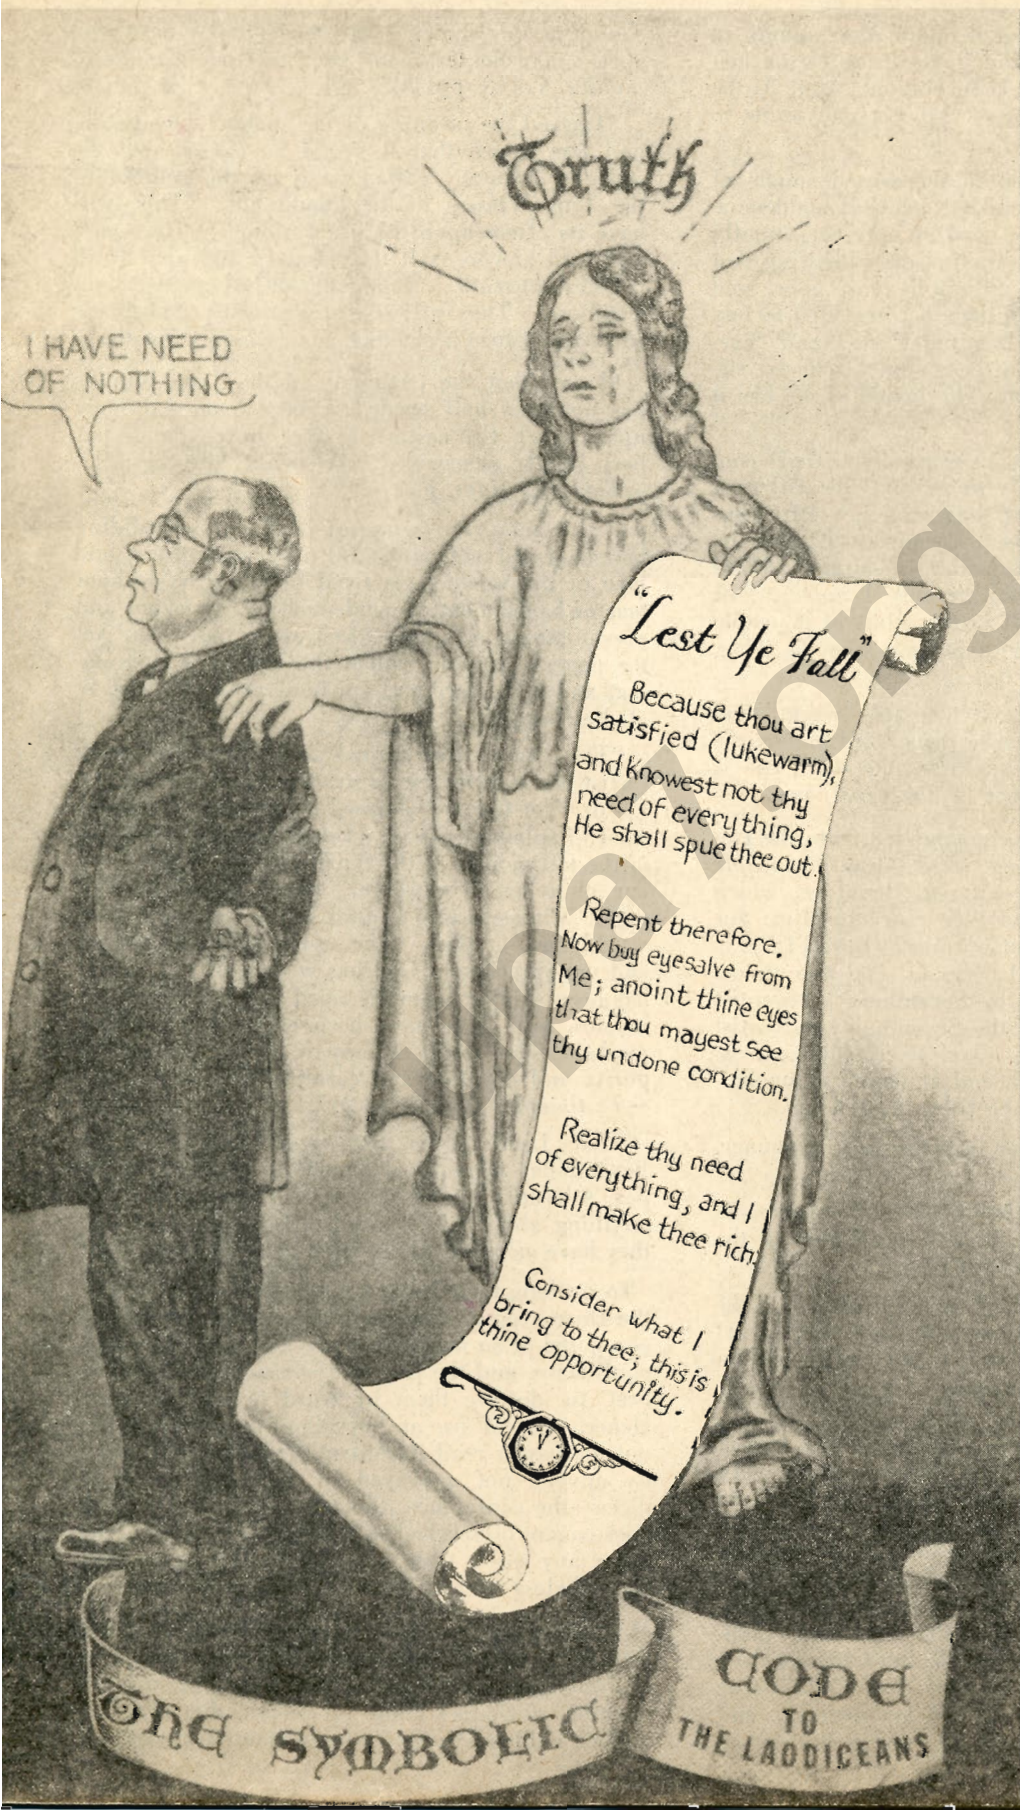 Truth
I HAVE NEED
OF NOTHING
"Lest Ye Fall"
Because thou art
satisfied (lukewarm),
and knowest not thy
need of everything,
He shall spue thee out.
Repent therefore.
Now buy eyesalve from
Me; anoint thine eyes
that thou mayest see
thy undone condition.
Realize thy need
of everything, and I
shall make thee rich.
Consider what I
bring to thee; this is
thine opportunity.
THE SYMBOLIC
CODE
TO
THE LAODICEANS
upa7.org